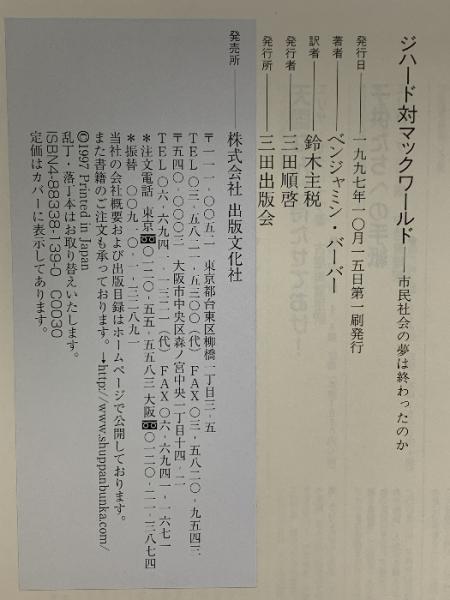 ジハード対マックワールド——市民社会の夢は終わったのか
発行日——一九九七年一〇月一五日第一刷発行
著者——ベンジャミン・バーバー
訳者——鈴木主税
発行者——三田順啓
発行所——三田出版会
発売所——株式会社 出版文化社
〒一一一-〇〇五二 東京都台東区柳橋一丁目三-五
TEL〇三-五八二一-五三〇〇(代) FAX〇三-五八二〇-九五四三
〒五四〇-〇〇〇三 大阪市中央区森ノ宮中央一丁目十四-二
TEL〇六-六九四一-一三二一(代) FAX〇六-六九四一-一六七一
*注文電話 東京〇一二〇-五五-五五八三 大阪〇一二〇-二一-三八七四
*振替 〇〇九一〇-一-三二八九一
当社の会社概要および出版目録はホームページで公開しております。
また書籍のご注文も承っております。→http://www.shuppanbunka.com/
©1997 Printed in Japan
乱丁・落丁本はお取り替えいたします。
ISBN4-88338-139-0 C0030
定価はカバーに表示してあります。